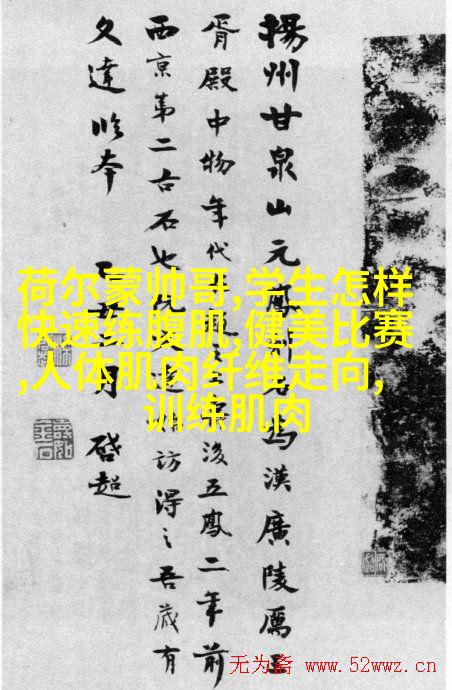 揚州甘泉山元鳳刻石為漢廣陵厲王
胥殿中物年代後五鳳二年前
西京第二古石也訪得之吾藏有
久達臨本
月 啓超
荷尔蒙帅哥,学生怎样
快速练腹肌,健美比赛
,人体肌肉纤维走向,
训练肌肉
无为斋 www.52wwz.cn